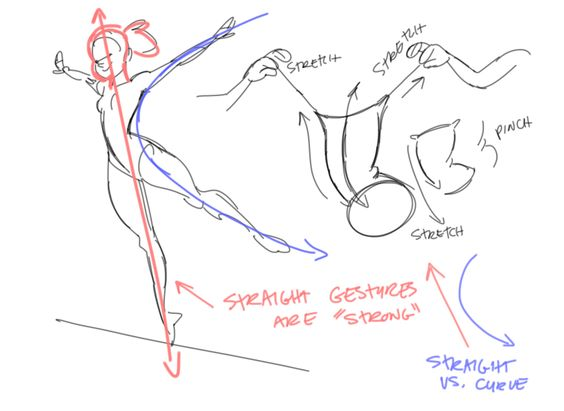 STRETCH
STRETCH
PINCH
STRETCH
STRAIGHT GESTURES
ARE "STRONG"
STRAIGHT
VS. CURVE